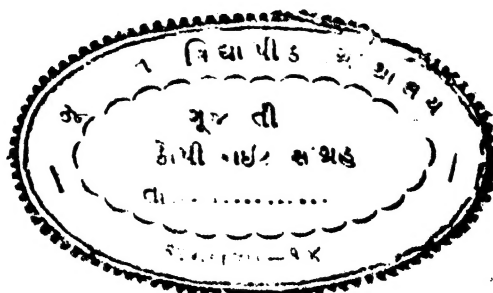 વિદ્યાપીઠ ગ્રંથાલય
ગૂજ તી
કોપી રાઈટ સંગ્રહ
તા..............
-૧૪